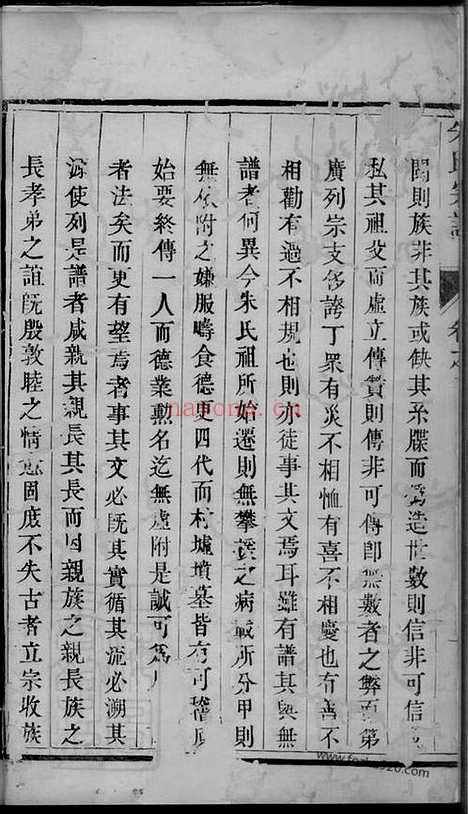 朱氏宗譜
卷之
閥則族非其族或缺其系牒而為造世數則信非可信
私其祖父而虛立傳贊則傳非可傳即無數者之弊而第
廣列宗支侈誇丁眾有災不相恤有喜不相慶也有善不
相勸有過不相規也則亦徒事其文焉耳雖有譜其與無
譜者何異今朱氏祖所始遷則無攀援之病載所分甲則
無依附之嫌服疇食德更四代而村墟墳墓皆有可稽原
始要終傳一人而德業勳名迄無虛附是誠可為
者法矣而更有望焉者事其文必既其實循其流必溯其
源使列是譜者咸親其親長其長而因親族之親長族之
長孝弟之誼既殷敦睦之情愈固庶不失古者立宗收族
nayona.cn
www.fozhu920.com